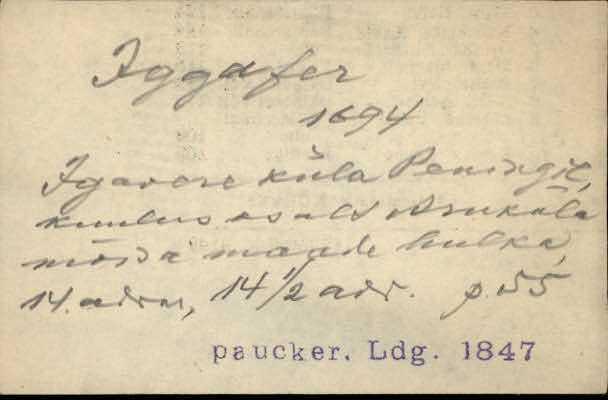 Iggafer
1694
Igavere küla Peningil,
kuulus osalt Aruküla
mõisa maade hulka,
14. adru, 14 1/2 adr. p. 55
paucker. Ldg. 1847